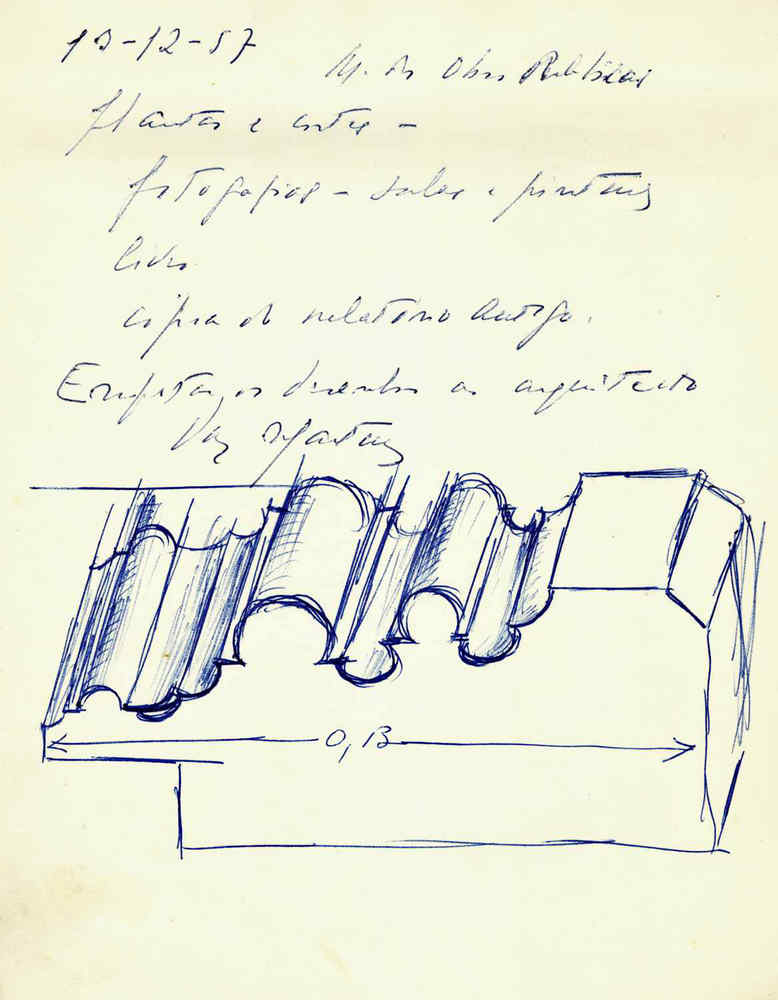 13-12-57
M. das Obras Publicas
plantas e cortes -
fotografias - salas e pinturas
copia do relatorio antigo.
os desenhos ao arquitecto
Vaz Martins
0,13